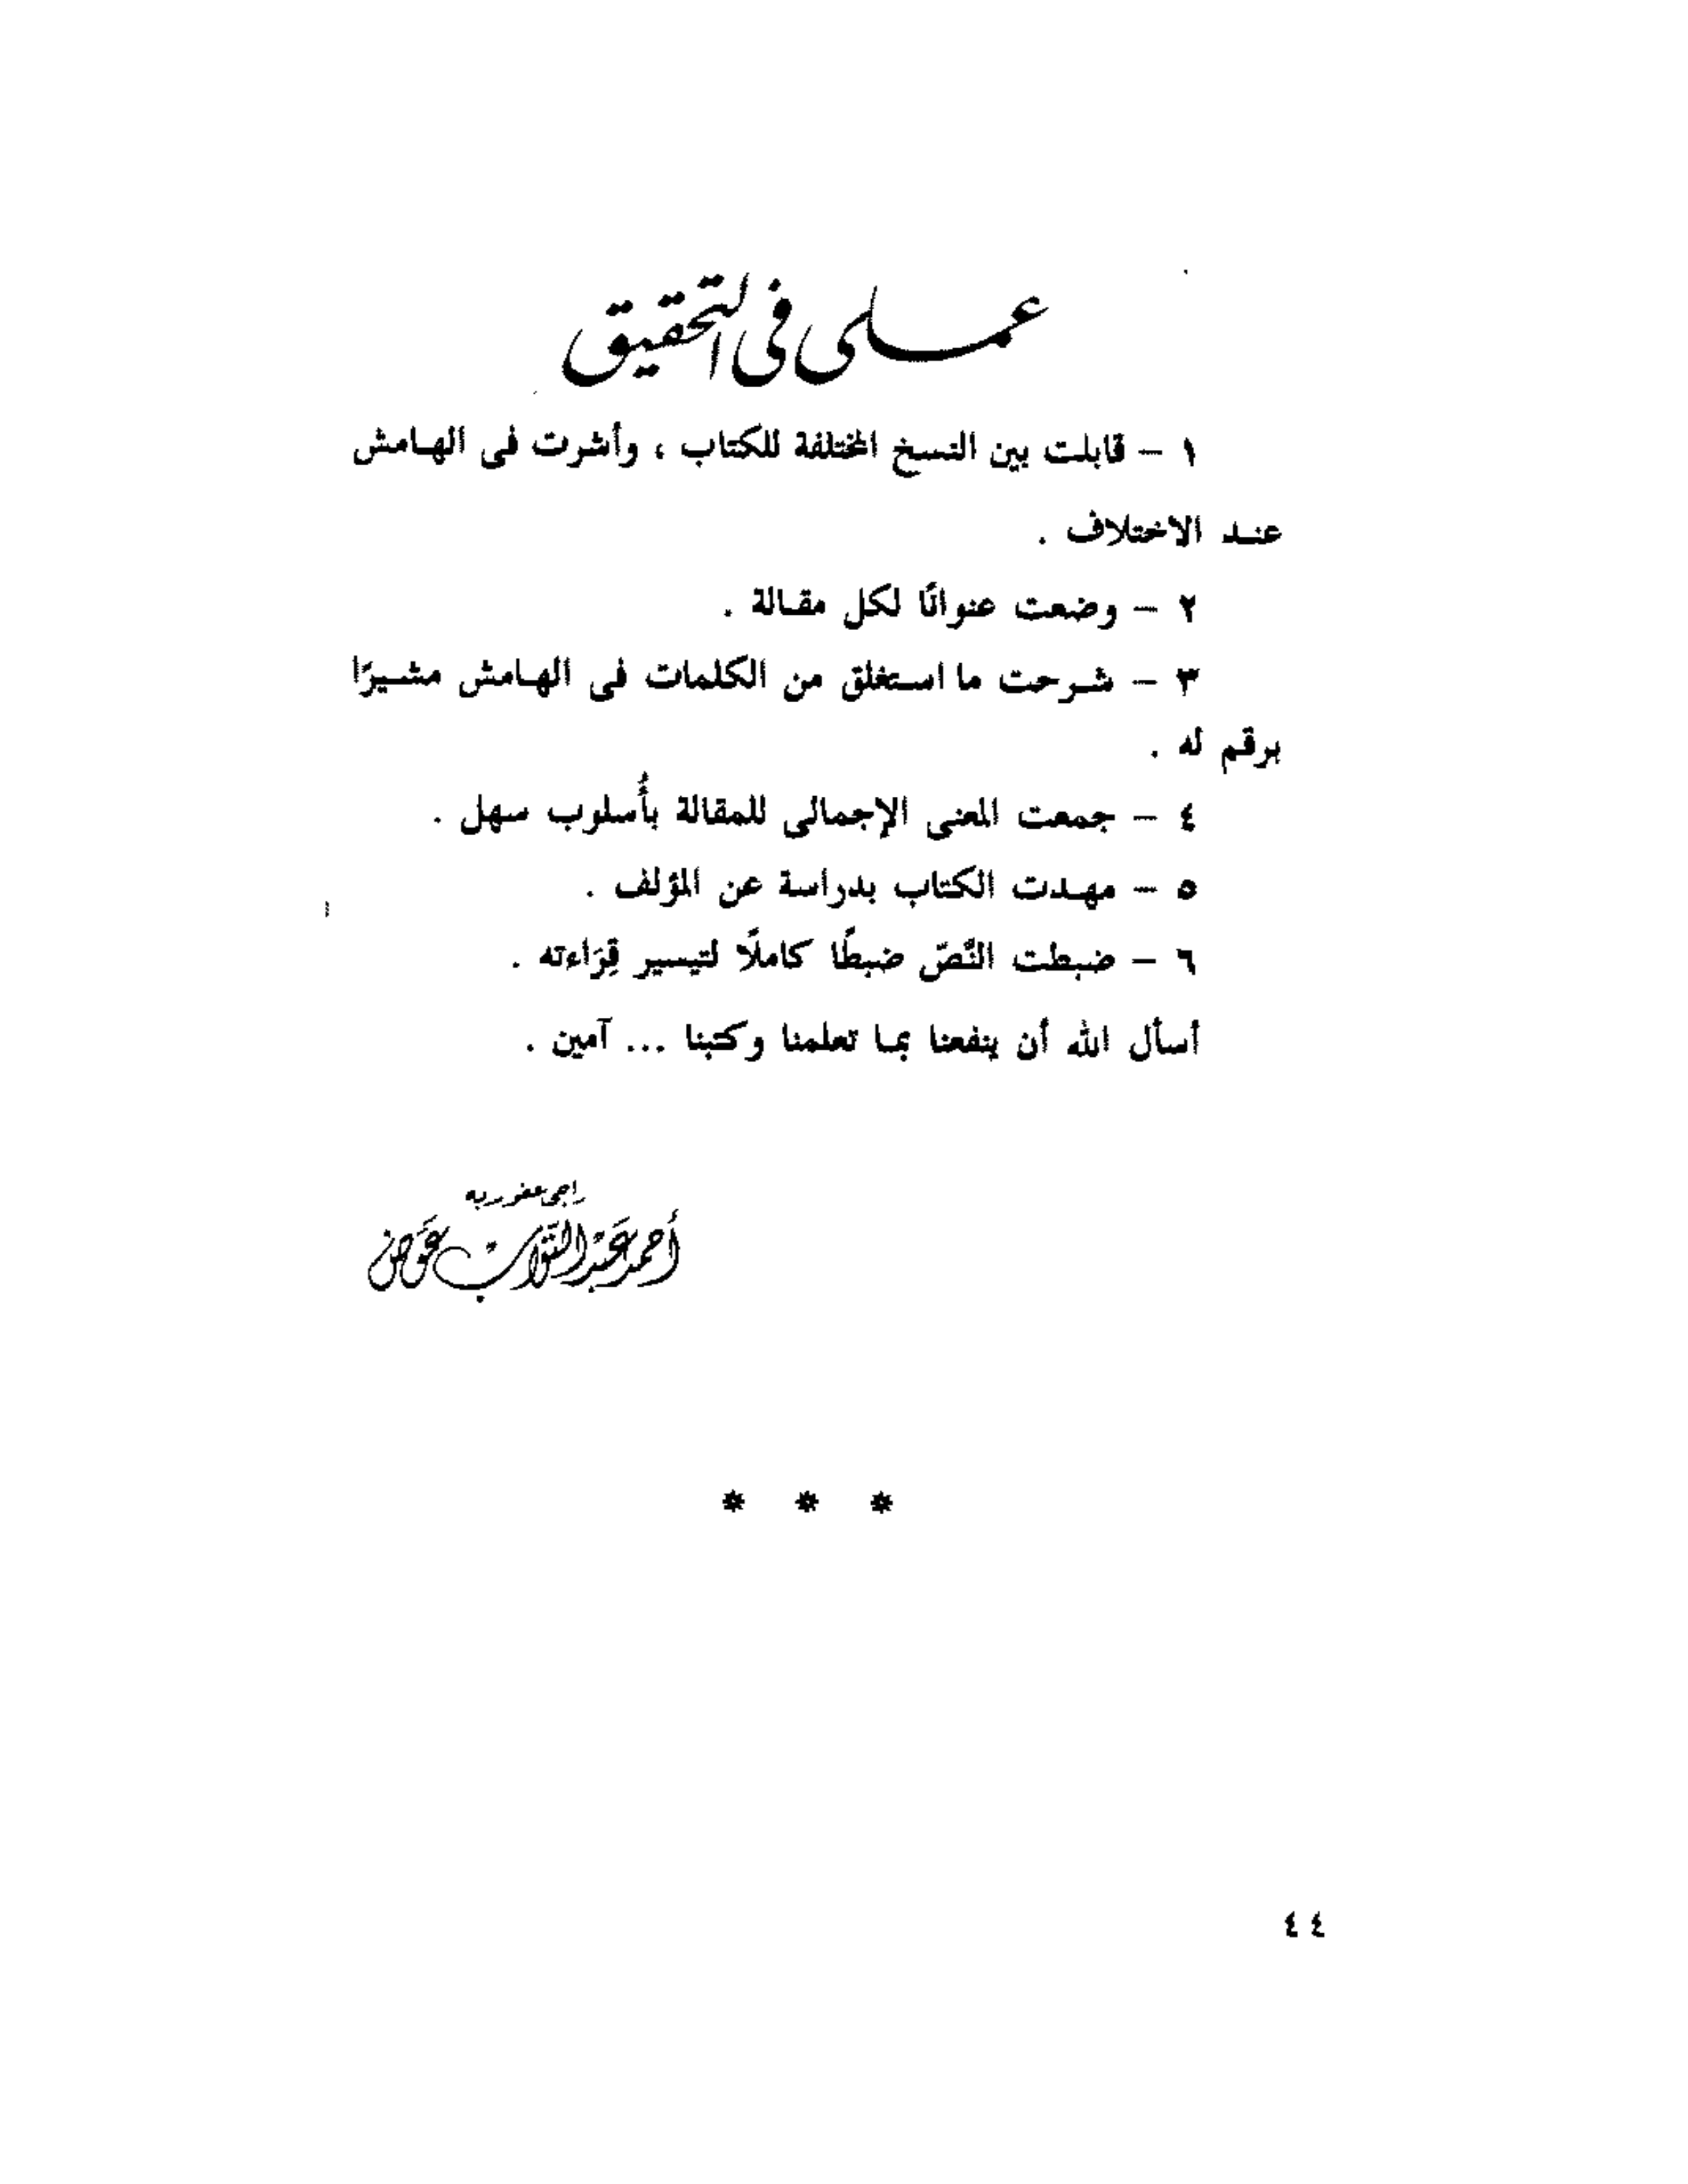 عملى فى التحقيق
١ – قابلت بين النسخ المختلفة للكتاب ، وأشرت فى الهامش
عند الاختلاف .
٢ – وضعت عنوانًا لكل مقالة .
٣ – شرحت ما استغلق من الكلمات فى الهامش مشيرًا
برقم له .
٤ – جمعت المعنى الإجمالى للمقالة بأُسلوب سهل .
٥ – مهدت الكتاب بدراسة عن المؤلف .
٦ – ضبطت النَّصّ ضبطًا كاملًا لتيسير قِرَاءته .
أسأل الله أن ينفعنا بما تعلمنا وكتبنا ... آمين .
راجى عفو ربه
أحمد عبد التواب عوض
* * *
٤٤